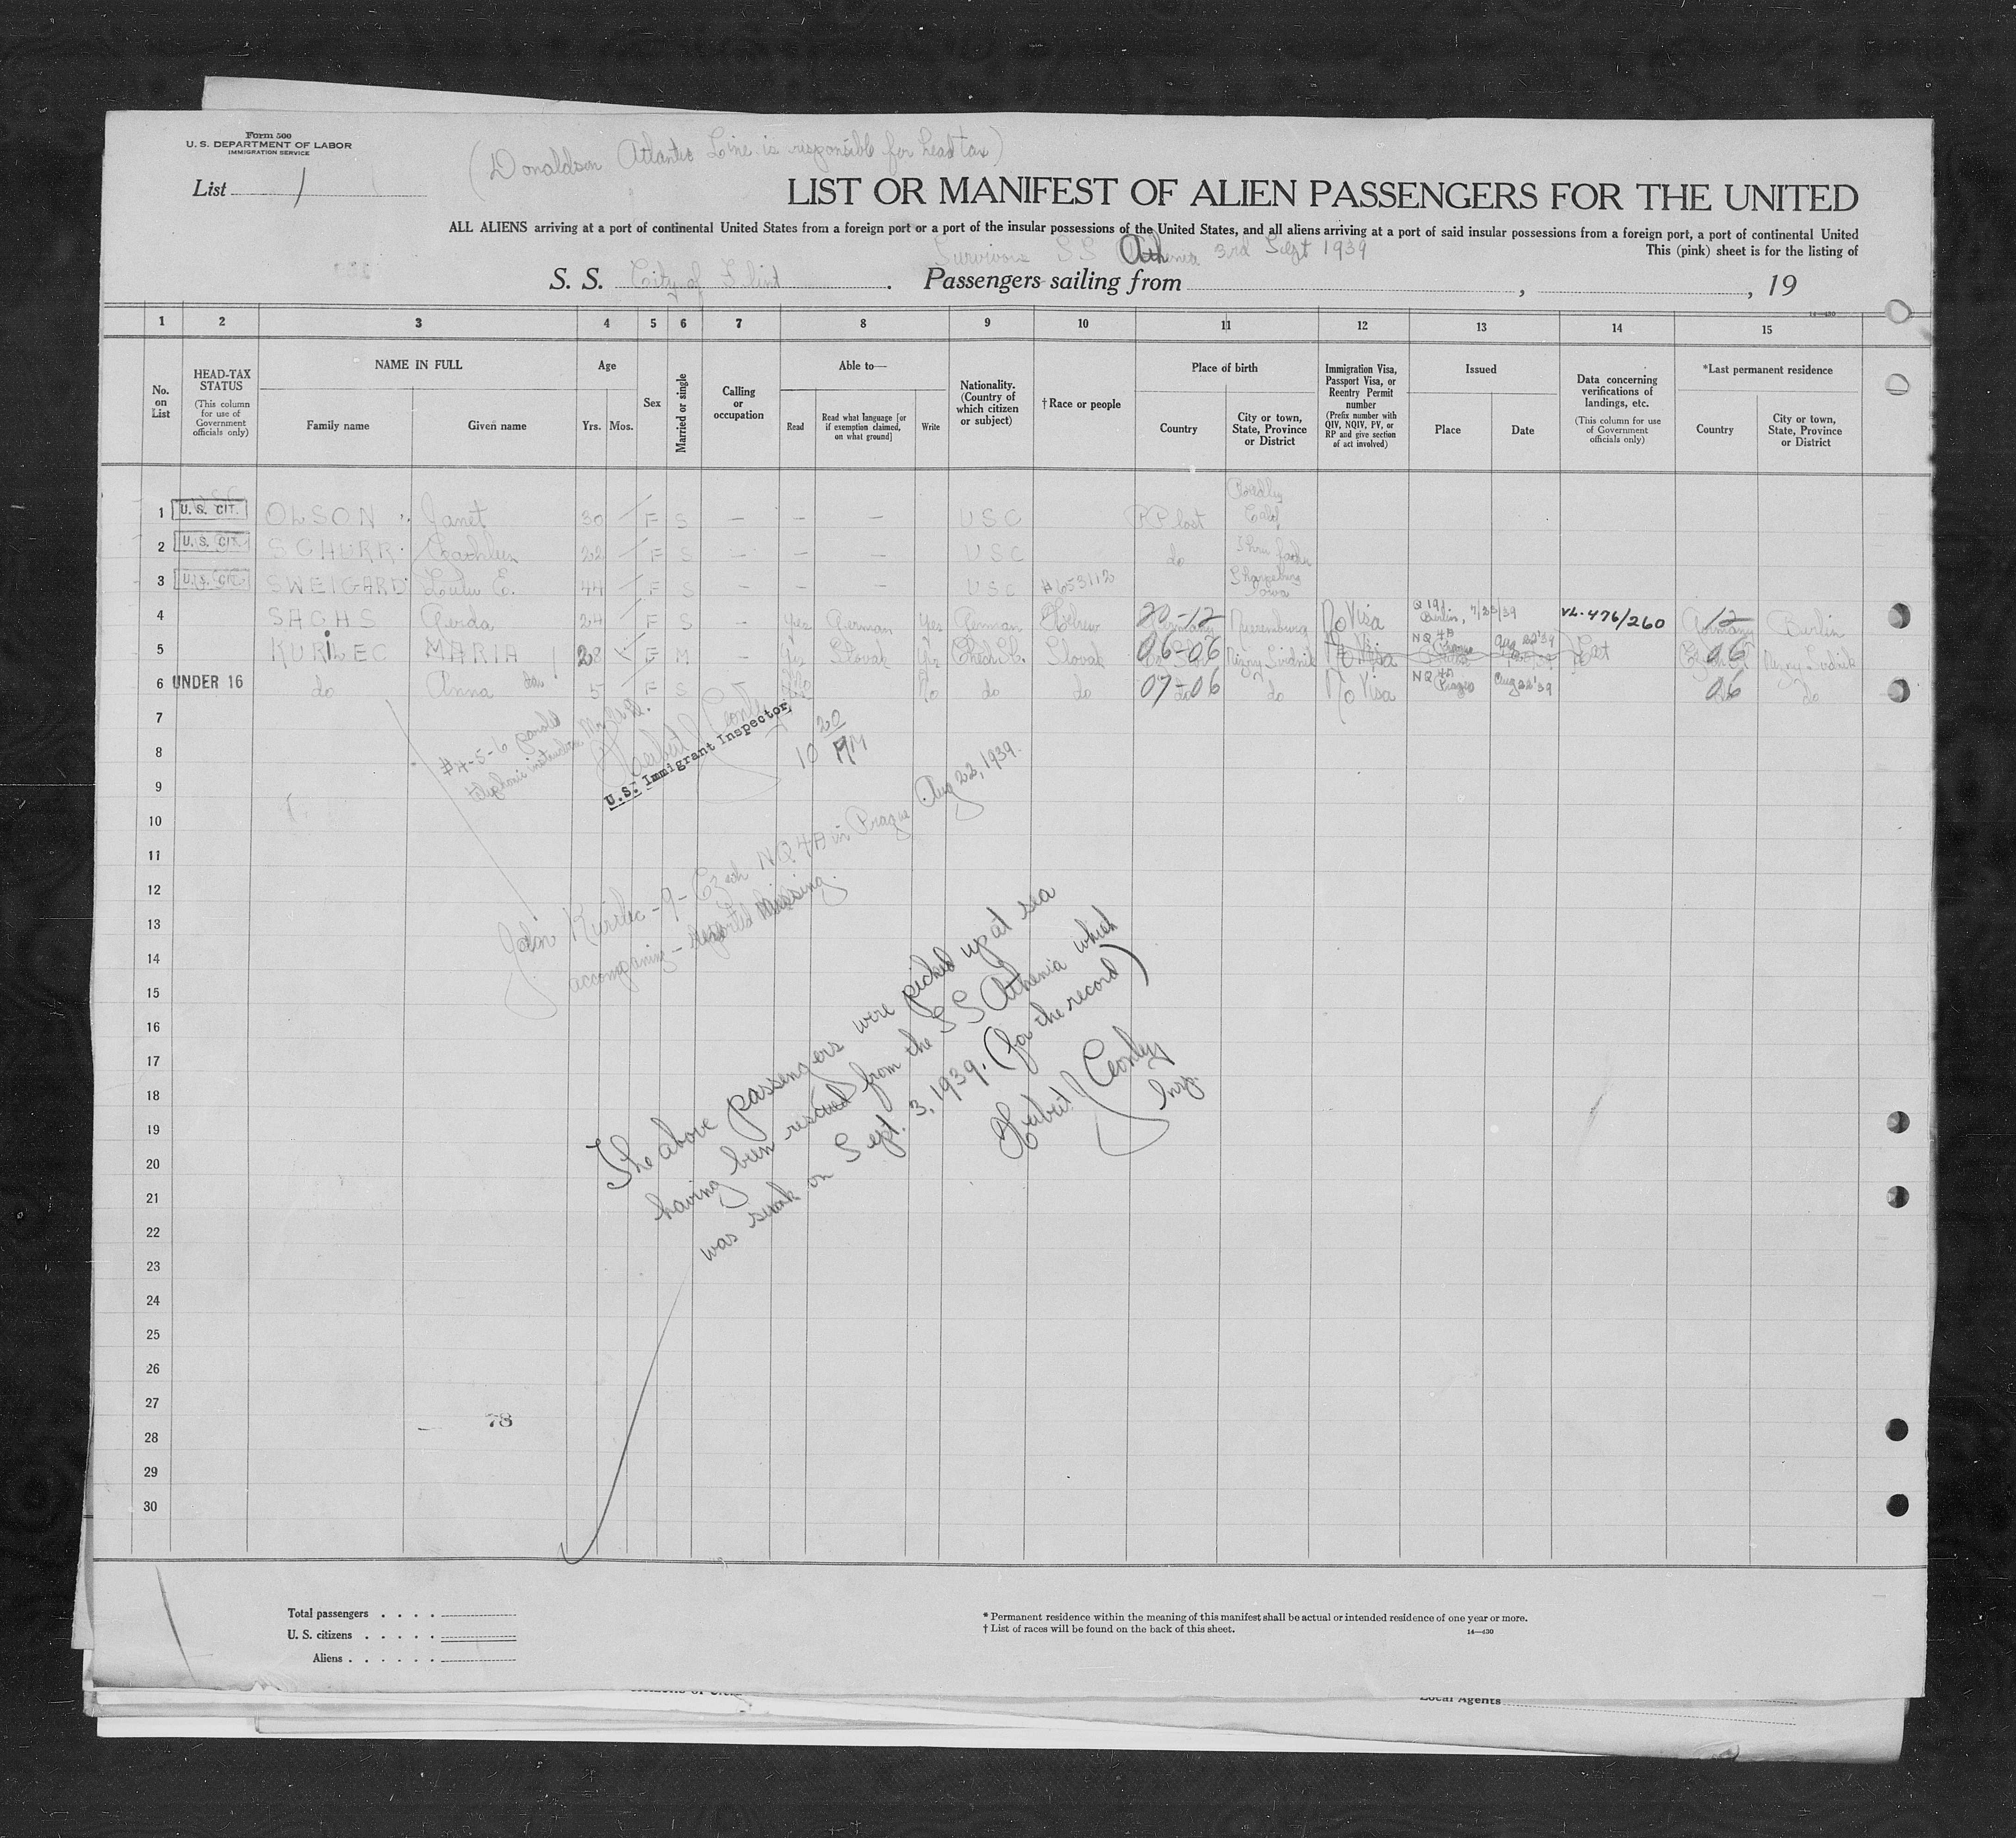 Form 500
U. S. DEPARTMENT OF LABOR
IMMIGRATION SERVICE
(Donaldson Atlantic Line is responsible for head tax)
List 1
LIST OR MANIFEST OF ALIEN PASSENGERS FOR THE UNITED
ALL ALIENS arriving at a port of continental United States from a foreign port or a port of the insular possessions of the United States, and all aliens arriving at a port of said insular possessions from a foreign port, a port of continental United
This (pink) sheet is for the listing of
Survivors SS Athenia 3rd Sept 1939
S. S. City of Flint. Passengers sailing from , , 19
14—430
1 2 3 4 5 6 7 8 9 10 11 12 13 14 15
No. on List
HEAD-TAX STATUS (This column for use of Government officials only)
NAME IN FULL
Family name Given name
Age
Yrs. Mos.
Sex
Married or single
Calling or occupation
Able to—
Read
Read what language [or if exemption claimed, on what ground]
Write
Nationality. (Country of which citizen or subject)
†Race or people
Place of birth
Country
City or town, State, Province or District
Immigration Visa, Passport Visa, or Reentry Permit number (Prefix number with QIV, NQIV, PV, or RP and give section of act involved)
Issued
Place Date
Data concerning verifications of landings, etc. (This column for use of Government officials only)
*Last permanent residence
Country
City or town, State, Province or District
1 U. S. CIT. OLSON Janet 30 F S — — — USC PP lost
2 U. S. CIT. SCHURR 22 F S — — — USC do
3 U. S. CIT. SWEIGARD Lulu E. 44 F S — — — USC #653112 Iowa
4 SACHS Gerda 24 F S yes German yes German Hebrew 20-12 Germany Nuremburg No Visa Q 191 Berlin, 7/25/39 VL-476/260 12 Germany Berlin
5 KURILEC MARIA 28 F M yes Slovak yes Slovak 06-06 Nizny Svidnik No Visa NQ 4A Prague Aug 22'39 06 Nizny Svidnik
6 UNDER 16 do Anna dau 5 F S — No No do do 07-06 do do No Visa NQ 4A Prague Aug 22'39 06 do
7
8
9
10
11
12
13
14
15
16
17
18
19
20
21
22
23
24
25
26
27
28
29
30
#4-5-6 paroled
telephonic instructions
Hubert Conley
U.S. Immigrant Inspector,
10 20 AM
John Kurilec - 9 - Czech NQ 4A in Prague Aug 22, 1939.
accompaning - reported missing.
The above passengers were picked up at sea
having been rescued from the SS Athenia which
was sunk on Sept. 3, 1939. (for the record)
Hubert Conley
Insp.
78
Total passengers . . . .
U. S. citizens . . . . .
Aliens . . . . . .
* Permanent residence within the meaning of this manifest shall be actual or intended residence of one year or more.
† List of races will be found on the back of this sheet.
14—430
Local Agents